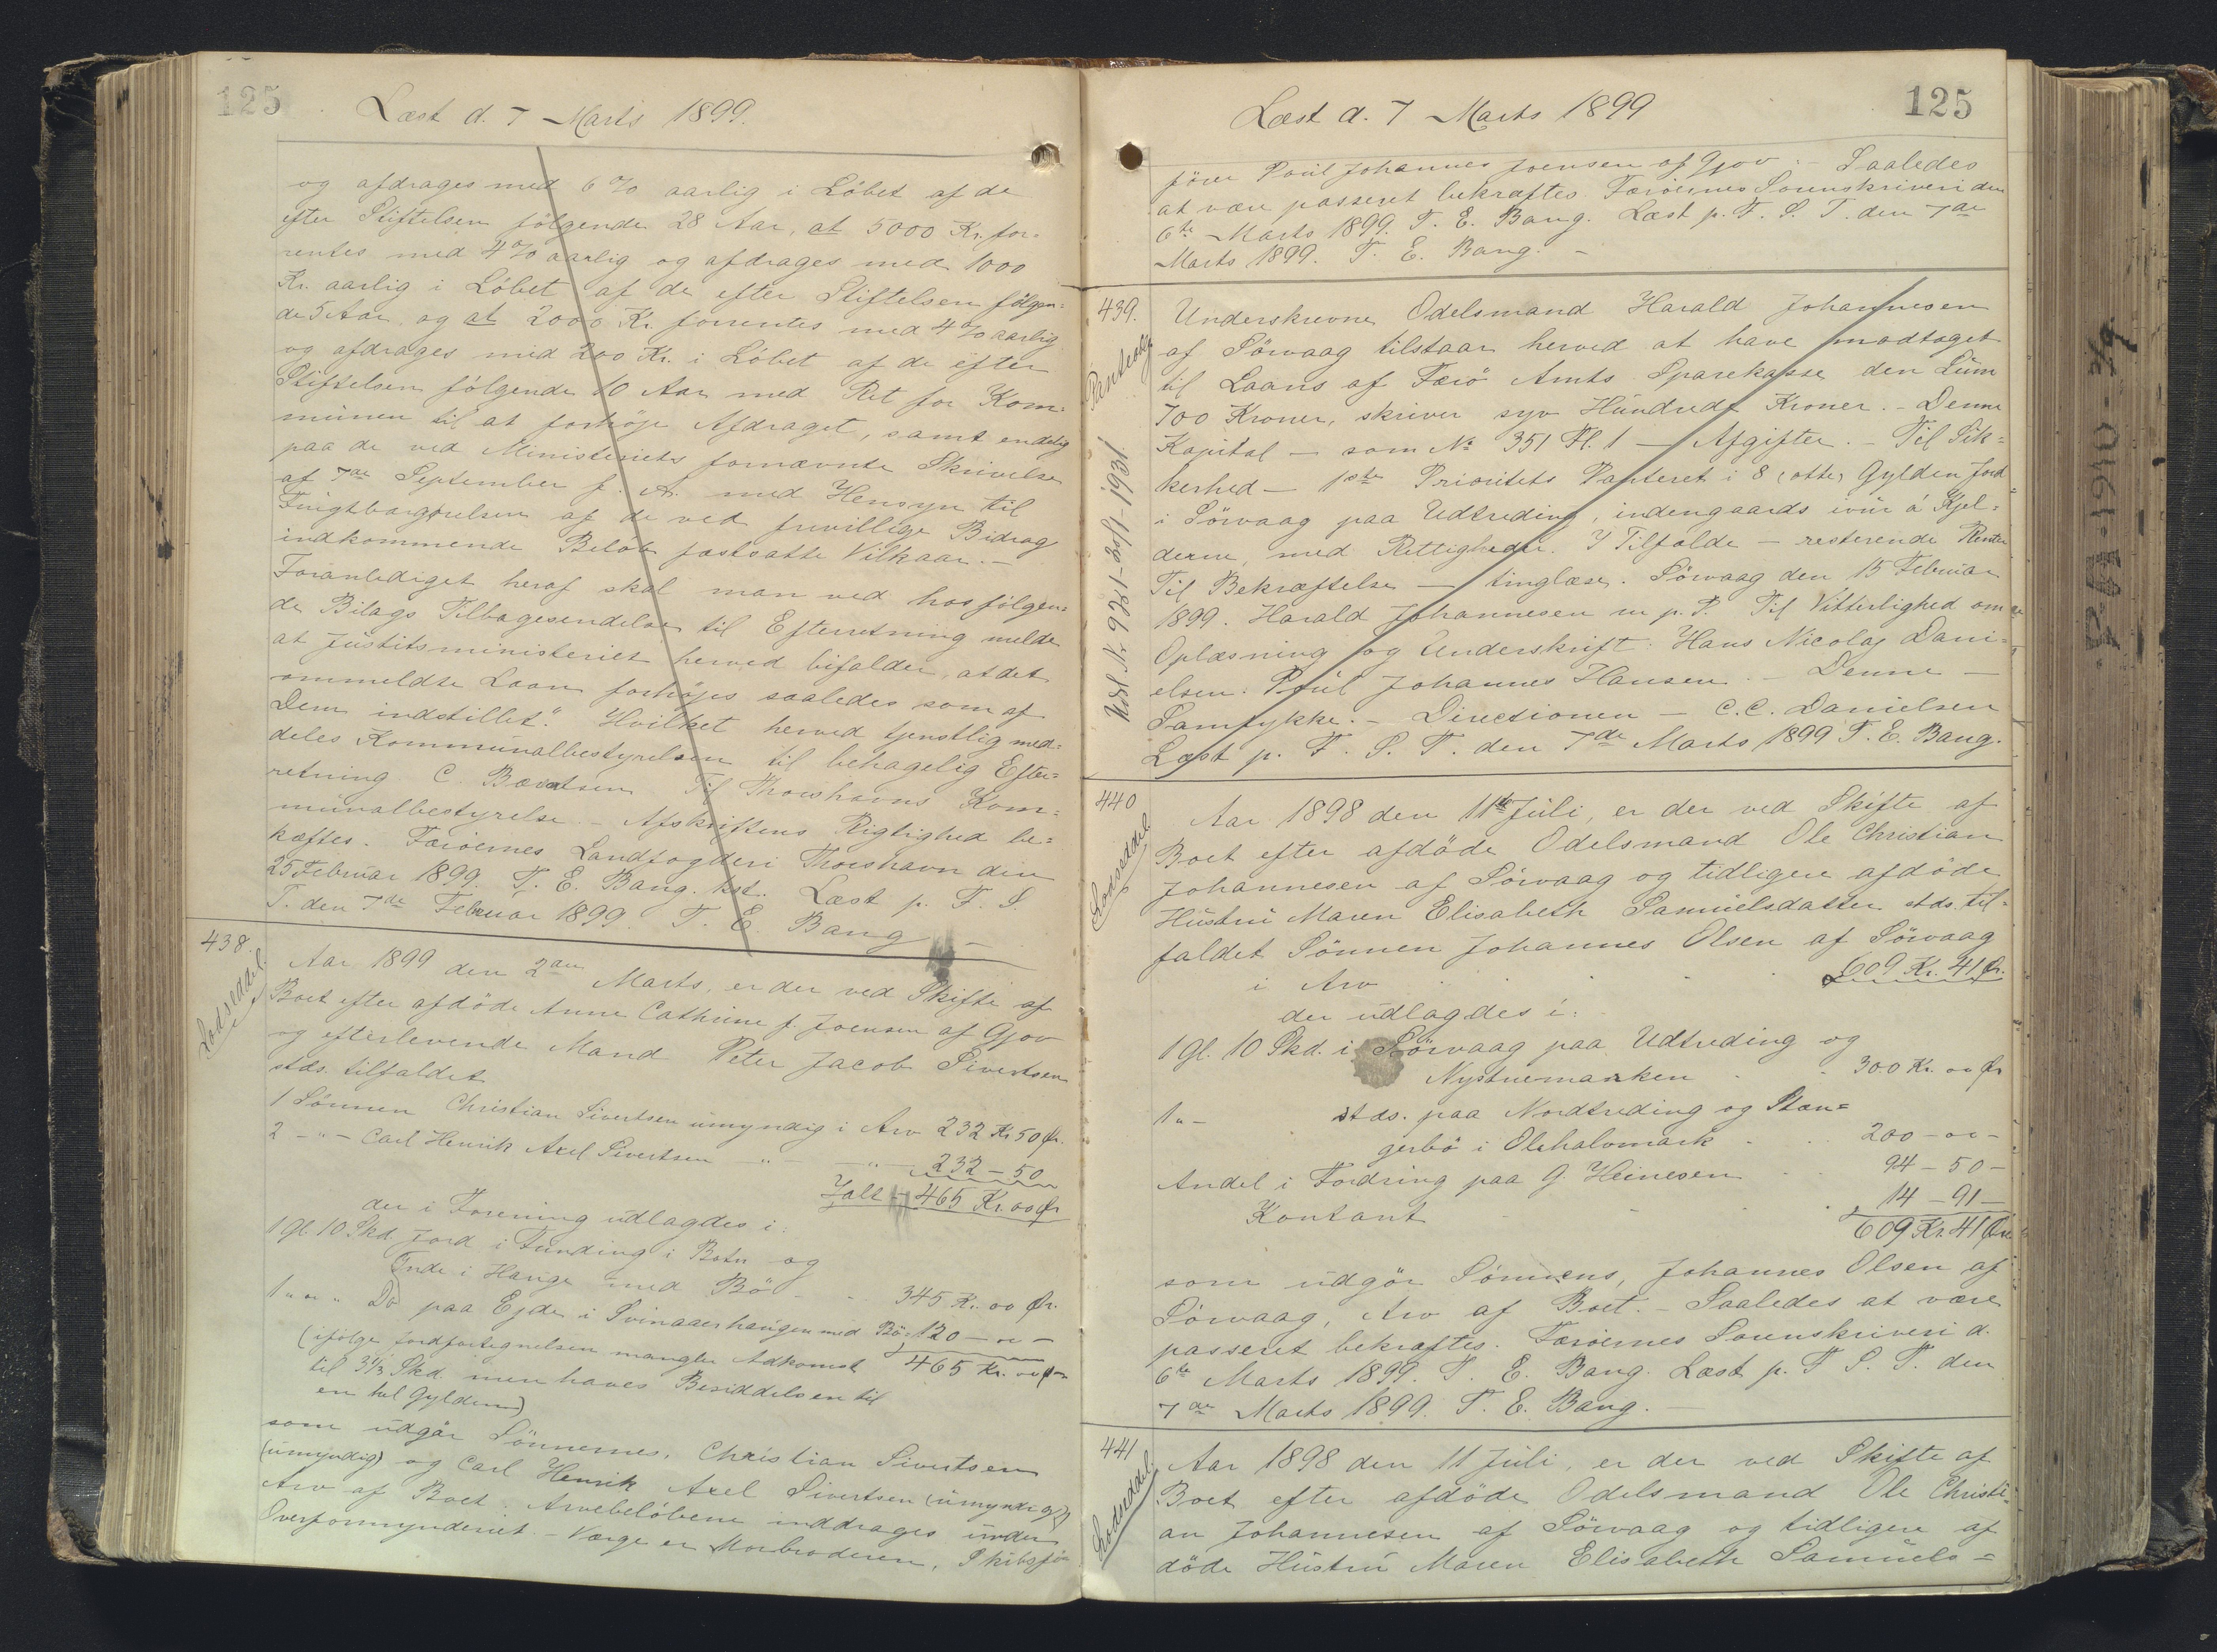 125
Læst d. 7 Marts 1899.
og afdrages med 6 % aarlig i Löbet af de
efter Stiftelsen følgende 28 Aar, at 5000 Kr. for-
rentes med 4 % aarlig og afdrages med 1000
Kr. aarlig i Löbet af de efter Stiftelsen følgen=
de 5 Aar, og at 2000 Kr. forrentes med 4 % aarlig
og afdrages med 200 Kr. i Löbet af de efter
Stiftelsen følgende 10 Aar med Ret for Kom=
munen til at forhöje Afdraget, samt endelig
paa de ved Ministeriets fornævnte Skrivelse
af 7de September f. A. med Hensyn til
Frugtbargørelsen af de ved frivillige Bidrag
indkommende Beløb fastsatte Vilkaar. -
Foranlediget heraf skal man ved hosfølgen=
de Bilags Tilbagesendelse til Efterretning melde
at Justitsministeriet herved bifalder, at det
ommeldte Laan forhöjes saaledes som af
Dem indstillet." Hvilket herved tjenstlig med=
deles Kommunalbestyrelsen til behagelig Efter=
retning C. Bærentsen Til Thorshavns Kom=
munalbestyrelse. - Afskriftens Rigtighed be=
kæftes. Færöernes Landfogderi Thorshavn den
25 Februar 1899. T. E. Bang. kst. Læst p. F. S.
T. den 7de Februar 1899. T. E. Bang -
438.
Lodseddel.
Aar 1899 den 2den Marts, er der ved Skifte af
Boet efter afdöde Anne Cathrine f. Joensen af Gjov
og efterlevende Mand Peter Jacob Sivertsen
stds. tilfaldet
1 Sönnen Christian Sivertsen umyndig i Arv 232 Kr 50 Ør.
2 - " - Carl Henrik Axel Sivertsen - " - - " - 232 - 50
Ialt - 465 Kr. 00 Ør
der i Forening udlagdes i:
1 gl. 10 Skd. Jord i Funding i Botn og
Inde i Hauge med Bö - - 345 Kr. 00 Ør.
1 " " " Do paa Ejde i Svinaaerhaugen med Bö= 120 - " -
(ifölge Jordfortegnelsen mangler Adkomst 465 Kr. 00 Ør
til 3 1/3 Skd. men haves Besiddelsen til
en hel Gylden)
som udgår Sönnernes, Christian Sivertsen
(umyndig) og Carl Henrik Axel Sivertsen (umyndig)
Arv af Boet. Arvebelöbene inddrages under
Overformynderiet. - Værge er Morbroderen, Skibsfö=
125
Læst d. 7 Marts 1899
förer Poul Johannes Joensen af Gjov. - Saaledes
at være passeret bekræftes. Færöernes Sorenskriveri den
6te Marts 1899. T. E. Bang. Læst p. F. S. T. den 7de
Marts 1899. T. E. Bang. -
439.
Panteobl.
Udsl. Nr 9251 - 30/1 - 1931.
Underskrevne Odelsmand Harald Johannesen
af Sörvaag tilstaar herved at have modtaget
til Laans af Færö Amts Sparekasse den Sum
700 Kroner, skriver syv Hundrede Kroner. - Denne
Kapital - som No 351 Fl. 1 - Afgifter. - Til Sik=
kerhed - 1ste Prioritets Panteret i 8 (otte) Gylden Jord
i Sörvaag paa Udtreding, indengaards ivur á Kjel=
derne med Rettigheder. I Tilfælde - resterende Renter
Til Bekræftelse - tinglæse. Sörvaag den 15 Februar
1899. Harald Johannesen m. p. P. Til Vitterlighed om
Oplæsning og Underskrift: Hans Nicolaj Dani=
elsen. Poul Johannes Hansen. - Denne -
Samtykke. - Directionen - C. C. Danielsen
Læst p. F. S. T. den 7de Marts 1899 T. E. Bang.
440
Lodseddel
Aar 1898 den 11te Juli, er der ved Skifte af
Boet efter afdöde Odelsmand Ole Christian
Johannesen af Sörvaag og tidligere afdöde
Hustru Maren Elisabeth Samuelsdatter stds. til=
faldet Sönnen Johannes Olsen af Sörvaag
i Arv 609 Kr. 41 Ør.
der udlagdes i:
1 gl. 10 Skd. i Sörvaag paa Udtreding og
Nystuemarken - - 300 Kr. 00 Ør
1 " - stds. paa Nordtreding og Stan=
gerbö i Olehalvmark - - 200 - 00 -
Andel i Fordring paa J. Heinesen - - 94 - 50 -
Kontant - - - 14 - 91 -
609 Kr. 41 Øre
som udgör Sönnens, Johannes Olsen af
Sörvaag, Arv af Boet. - Saaledes at være
passeret bekræftes. Færöernes Sorenskriveri d.
6te Marts 1899. T. E. Bang. Læst p. F S. T. den
7de Marts 1899. T. E. Bang. -
441
Lodseddel.
Aar 1898 den 11 Juli, er der ved Skifte af
Boet efter afdöde Odelsmand Ole Christi=
an Johannesen af Sörvaag og tidligere af
döde Hustru Maren Elisabeth Samuels=